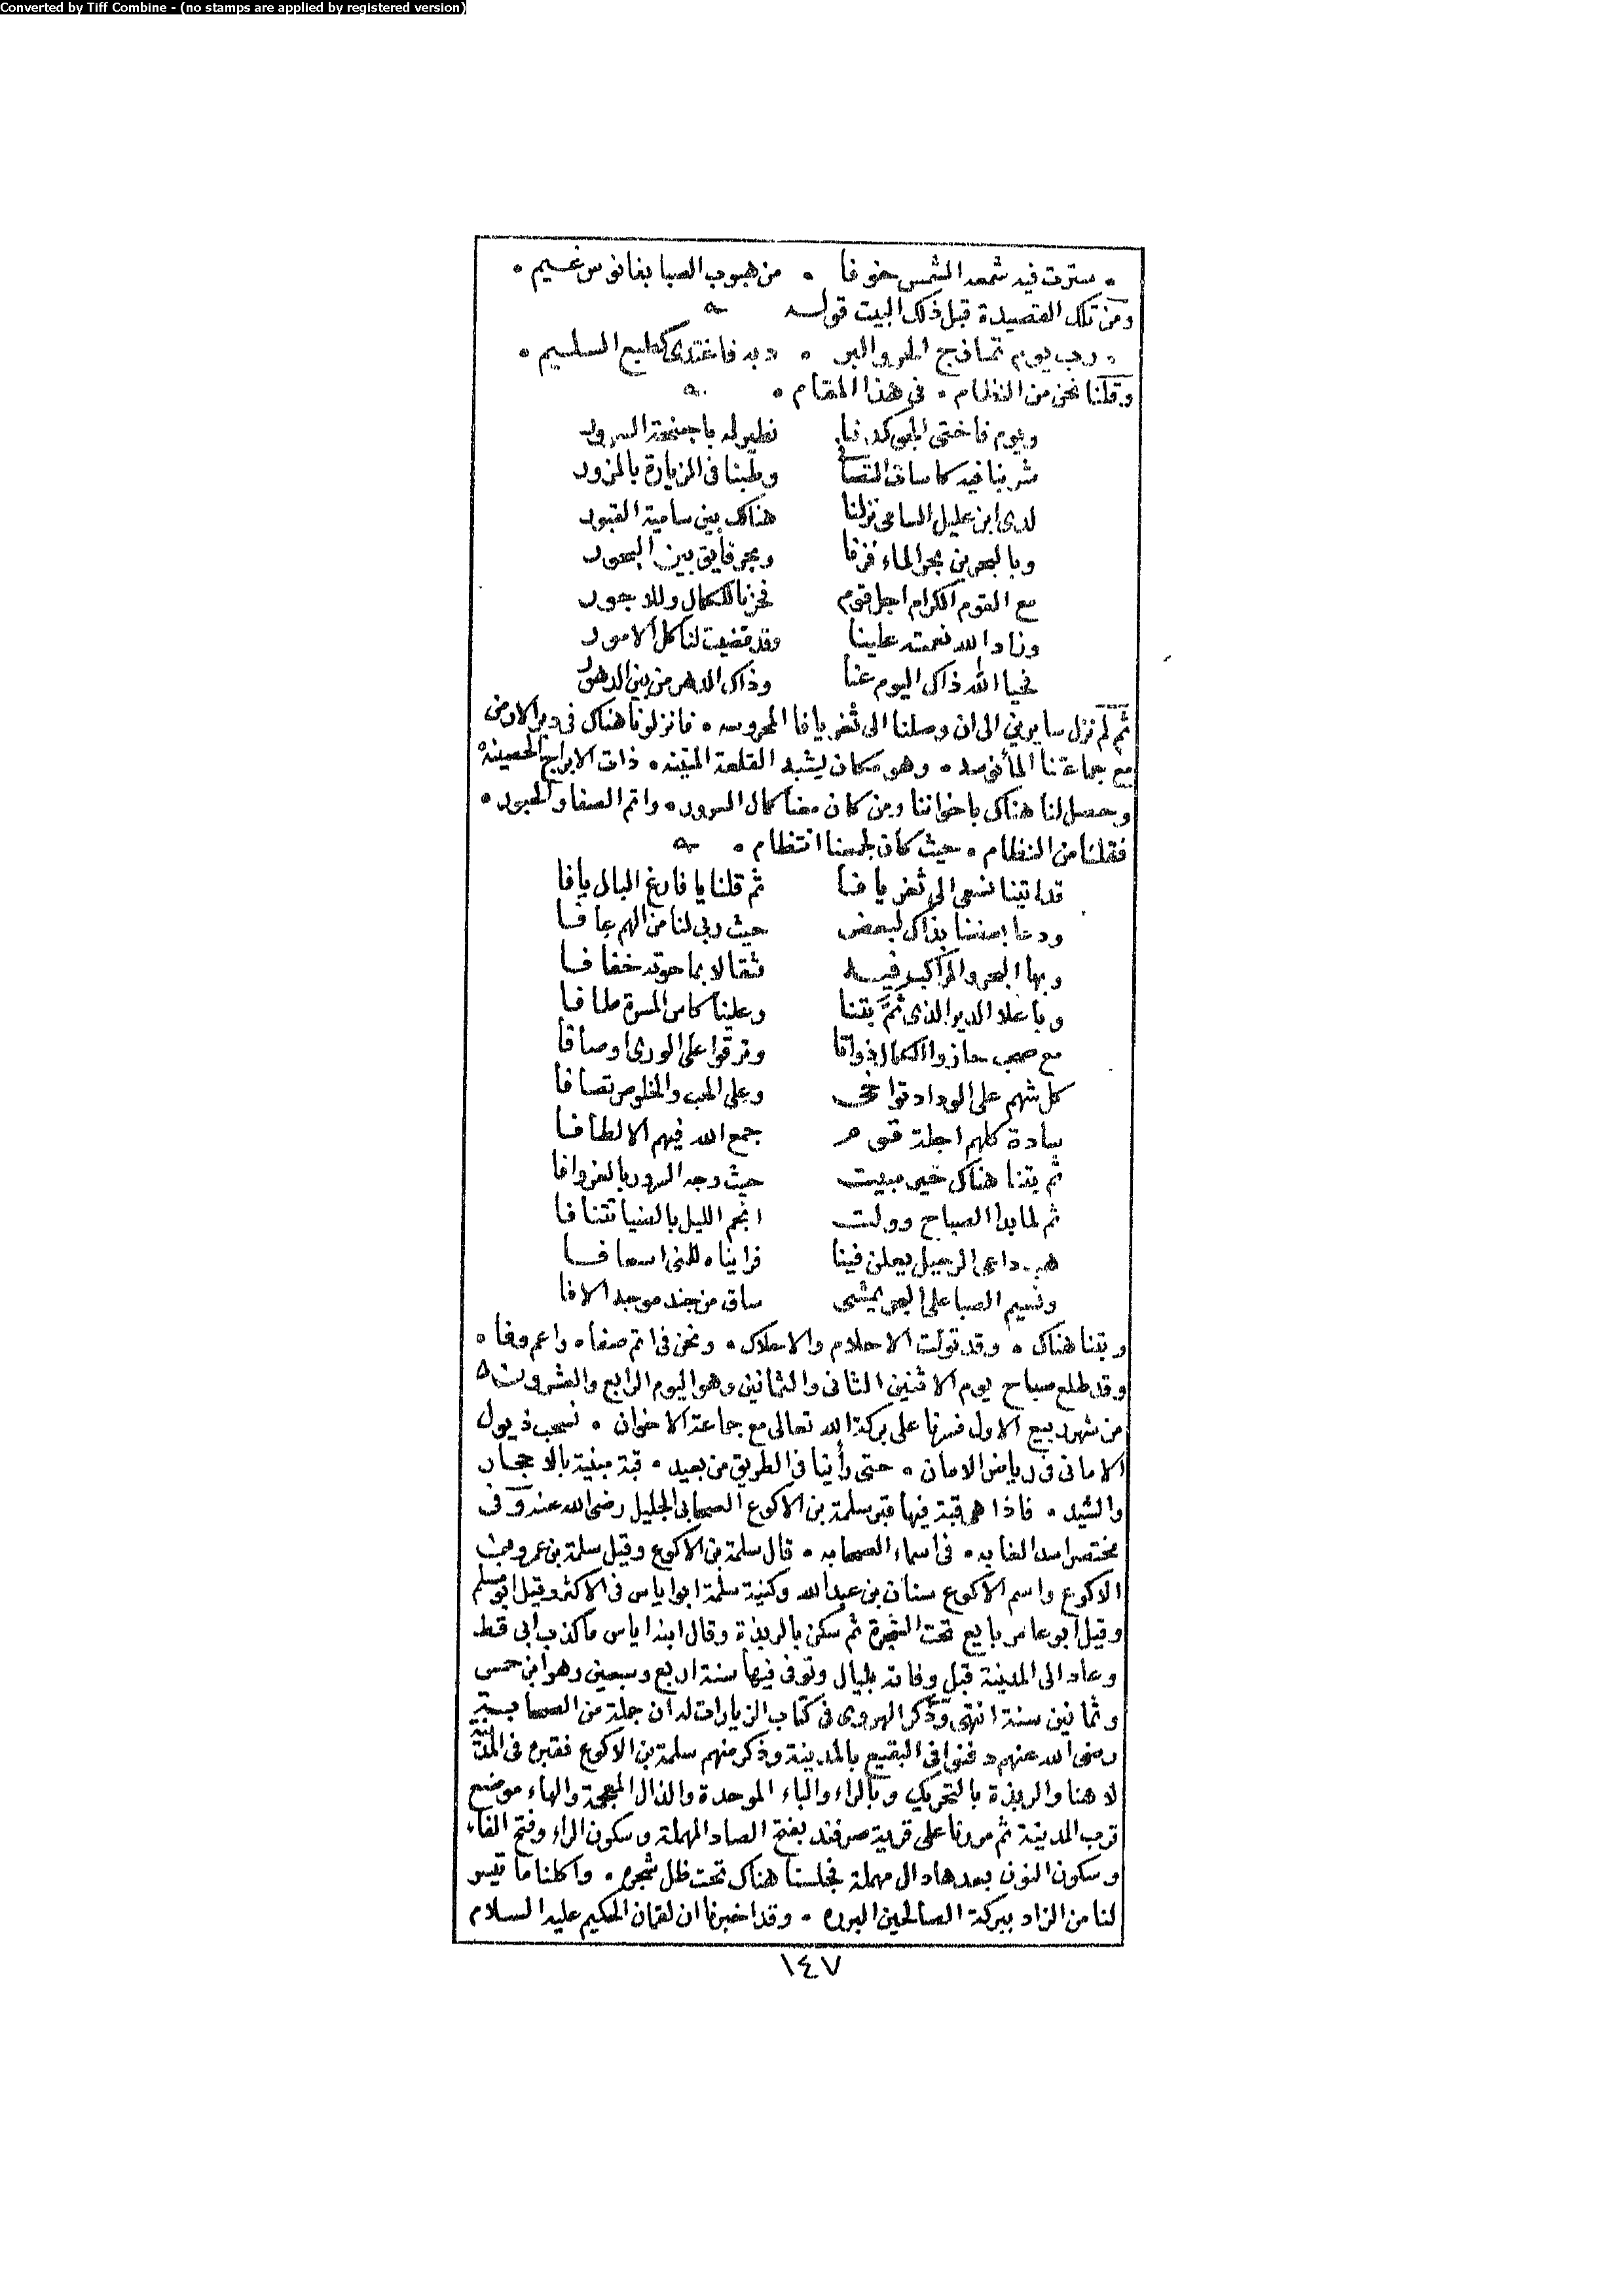 Converted by Tiff Combine - (no stamps are applied by registered version)
• سترت فيه شمعه الشمس خوفا • من هبوب الصبا بفانوس غيم •
ومن تلك القصيدة قبل ذلك البيت قوله
• رب يوم تمازج الحر والبر • د به فاغتدى كطبع السليم •
وقلنا نحن من النظام • في هذا المقام •
ويوم فاختى الجو كدنا نطير له باجنحة السرور
شربنا فيه كاسات التصا وطبنا في الزيارة بالمزور
لدى ابن عليل السامى نزلنا هناك بين سامية القبور
وبالبحرين بحر الماء فزنا وبحر فايق بين البحور
مع القوم الكرام اجل قوم فحزنا للكمال وللاجور
وزاد الله نعمته علينا وقد قضيت لنا كل الامور
فحيا الله ذاك اليوم عنا وذاك الدهر من بين الدهور
ثم لم نزل سايرين الى ان وصلنا الى ثغر يافا المحروسه • فانزلونا هناك في دير الارمن
مع جماعتنا المأنوسه • وهو مكان يشبه القلعة المتينه • ذات الابراج الحصينة
وحصل لنا هناك باخواننا ومن كان معنا كمال السرور • واتم الصفا والحبور •
فقلنا من النظام • حيث كان لجمعنا انتظام •
قد اتينا نسعى الى ثغر يافا ثم قلنا يا فارغ البال يافا
ودعا بعضنا بذاك لبعض حيث ربى لنا من الهم عافا
وبها البحر والمراكب فيه ثقالا بما حوته خفافا
وباعلا الدير الذى ثم بتنا وعلينا كاس المسرة طافا
مع صحب حازوا الكمال ذواتا وترقوا على الورى اوصافا
كل شهم على الوداد تواخى وعلى الحب والخلوص تصافا
سادة كلهم اجلة قوم جمع الله فيهم الالطافا
ثم بتنا هناك خير مبيت حيث وجه السرور بالعز وافا
ثم لما بدا الصباح وولت انجم الليل بالضيا تتنافا
هب داعى الرحيل يعلن فينا فراينا للمنى اسعافا
ونسيم الصبا على البحر يمشى ساق من جند موجه الافا
وبتنا هناك • وقد تولت الاحلام والاحلاك • ونحن في اتم صفا • واعم وفا •
وقد طلع صباح يوم الاثنين الثانى والثمانين وهو اليوم الرابع والعشرون
من شهر ربيع الاول فسرنا على بركة الله تعالى مع جماعة الاخوان • نسحب ذيول
الامانى في رياض الامان • حتى رأينا في الطريق من بعيد • قبة مبنية بالاحجار
والشيد • فاذا هى قبة فيها قبر سلمة بن الاكوع الصحابى الجليل رضى الله عنه وفى
مختصر اسد الغابه • في اسماء الصحابه • قال سلمة بن الاكوع وقيل سلمة بن عمرو بن
الاكوع واسم الاكوع سنان بن عبدالله وكنية سلمة ابو اياس في الاكثر وقيل ابو مسلم
وقيل ابو عامر بايع تحت الشجرة ثم سكن بالربذة وقال ابنه اياس ما كذب ابى قط
وعاد الى المدينة قبل وفاته بليال وتوفى فيها سنة اربع وسبعين وهو ابن خمس
وثمانين سنة انتهى وذكر الهروى في كتاب الزيارات له ان جملة من الصحابة
رضى الله عنهم دفنوا في البقيع بالمدينة وذكر منهم سلمة بن الاكوع فقبره في المدينة
لا هنا والربذة بالتحريك وبالراء والباء الموحدة والذال المعجمة والهاء موضع
قرب المدينة ثم مررنا على قرية صرفند بفتح الصاد المهملة وسكون الراء وفتح الفاء
وسكون النون بعدها دال مهملة فجلسنا هناك تحت ظل شجره • واكلنا ما تيسر
لنا من الزاد ببركة الصالحين البرره • وقد اخبرنا ان لقمان الحكيم عليه السلام
١٤٧